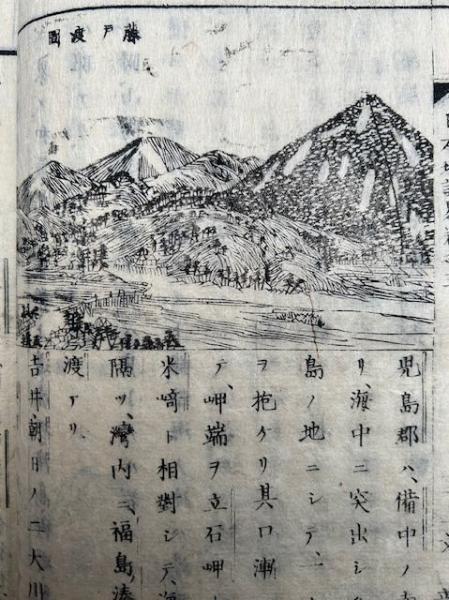 藤戸渡圖
兒島郡ハ、備中ノ
リ、海中ニ突出シ
島ノ地ニシテ、一
ヲ抱ケリ其口漸
テ、岬端ヲ立石岬ト
米﨑ト相對シテ、海
隔ツ、灣内ニ、福島湊
渡アリ、
吉井、朝日ノ二大川